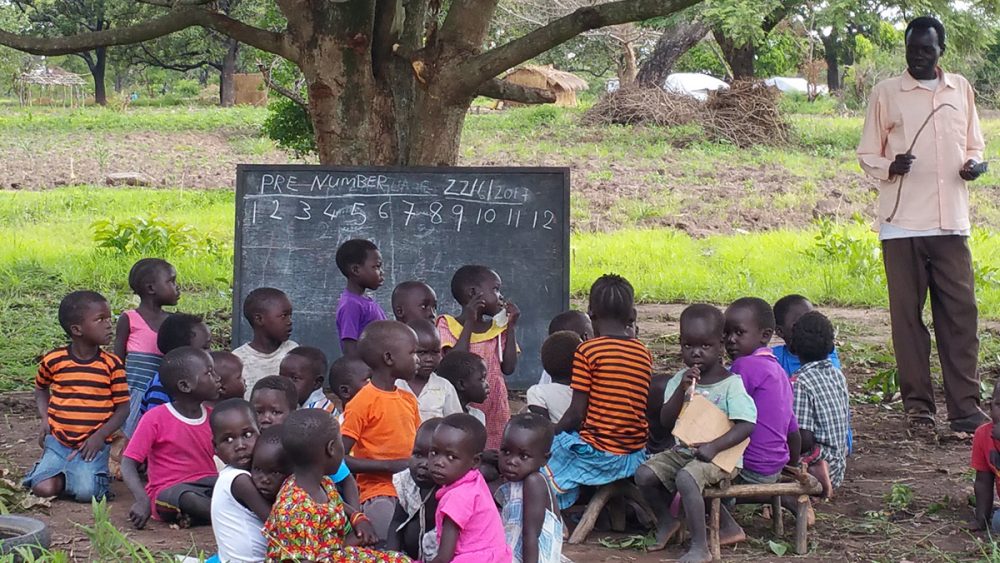 PRE NUMBER 22/6/2017
1 2 3 4 5 6 7 8 9 10 11 12